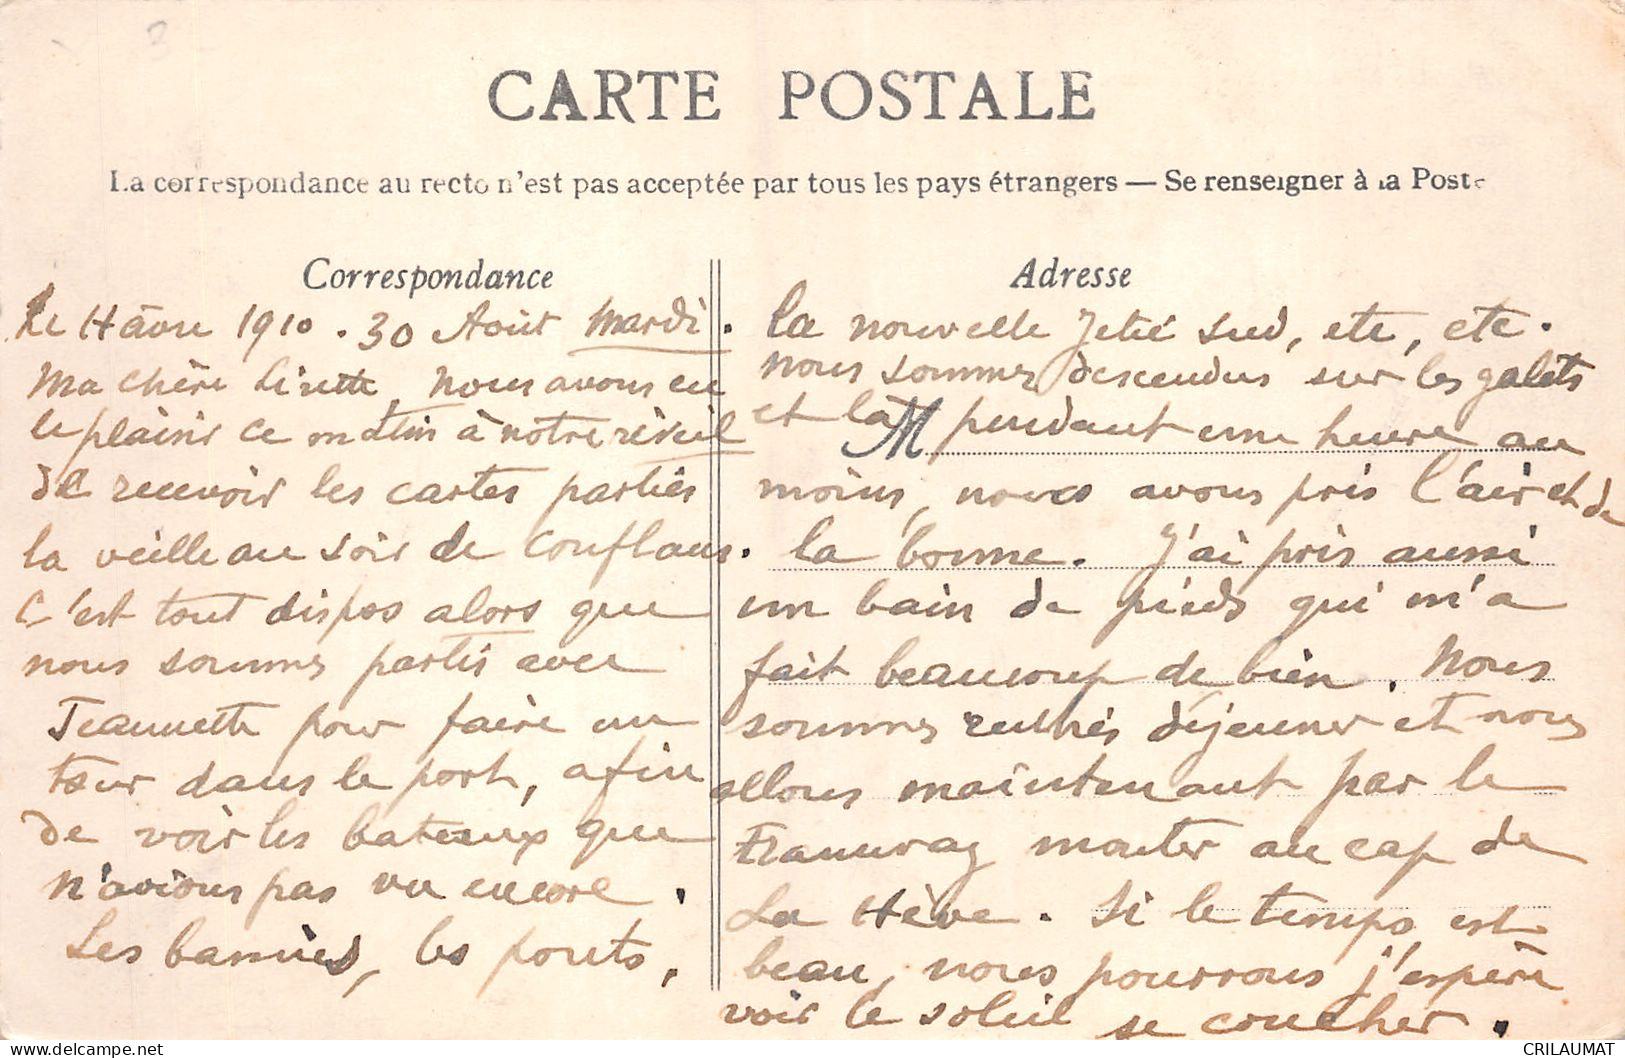 CARTE POSTALE
La correspondance au recto n'est pas acceptée par tous les pays étrangers — Se renseigner à la Poste
Correspondance
Le Hâvre 1910 . 30 Août Mardi .
Ma chère Linette, nous avons eu
le plaisir ce matin à notre réveil
de recevoir les cartes parties
la veille au soir de Conflans.
C'est tout dispos alors que
nous sommes partis avec
Jeannette pour faire un
tour dans le port, afin
de voir les bateaux que
n'avions pas vu encore .
Les bassins, les ponts,
Adresse
la nouvelle Jetée sud, etc, etc.
nous sommes descendus sur les galets
et la M pendant une heure au
moins, nous avons pris l'air et de
la bonne. J'ai pris aussi
un bain de pieds qui m'a
fait beaucoup de bien . Nous
sommes rentrés déjeuner et nous
allons maintenant par le
Tramway monter au cap de
La Hève . Si le temps est
beau, nous pourrons j'espère
voir le soleil se coucher .
CRILAUMAT